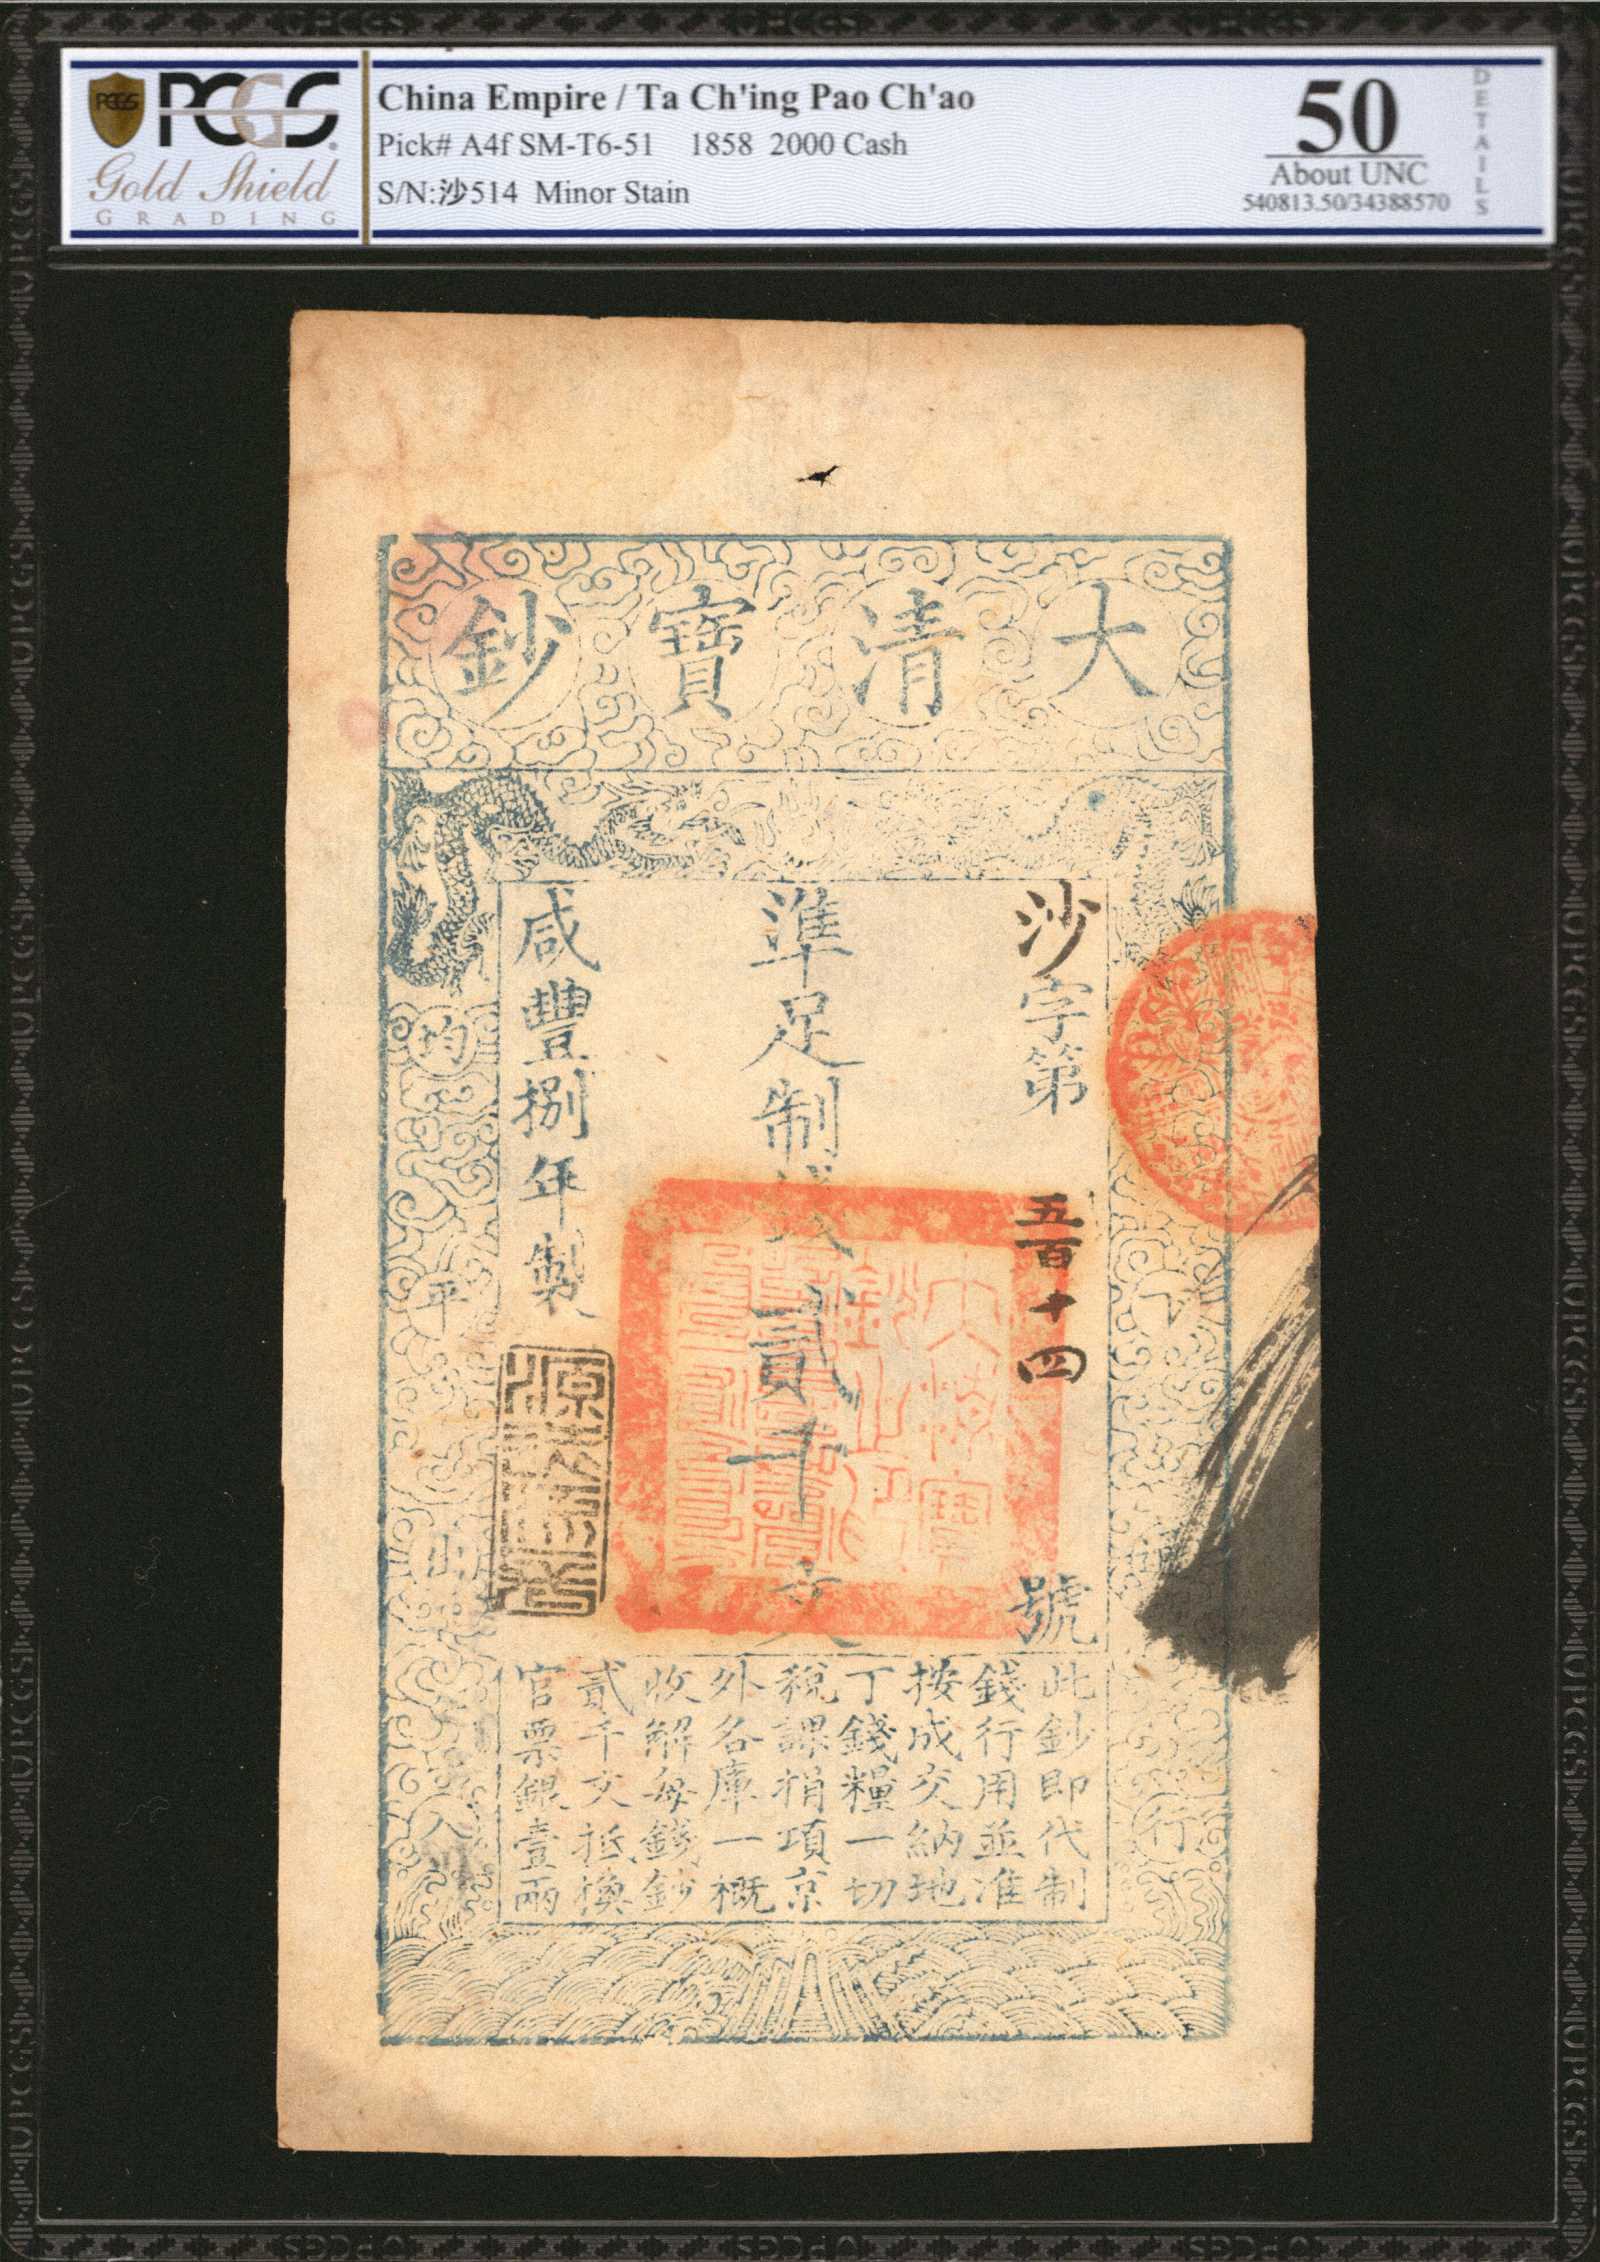 PCGS
Gold Shield
GRADING
China Empire / Ta Ch'ing Pao Ch'ao
Pick# A4f SM-T6-51 1858 2000 Cash
S/N:沙514 Minor Stain
50
About UNC
540813.50/34388570
DETAILS
大清寶鈔
沙字第五百十四號
準足制錢貳千文
咸豐捌年製
此鈔即代制
錢行用並准
按成交納地
丁錢糧一切
稅課捐項京
外各庫一概
收解每錢鈔
貳千文抵換
官票銀壹兩
行
均
平
出
入